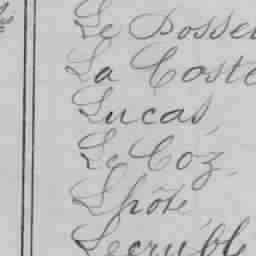 Le Dosse
La Coste
Lucas,
Le Coz,
Lhôte,
Lecruble